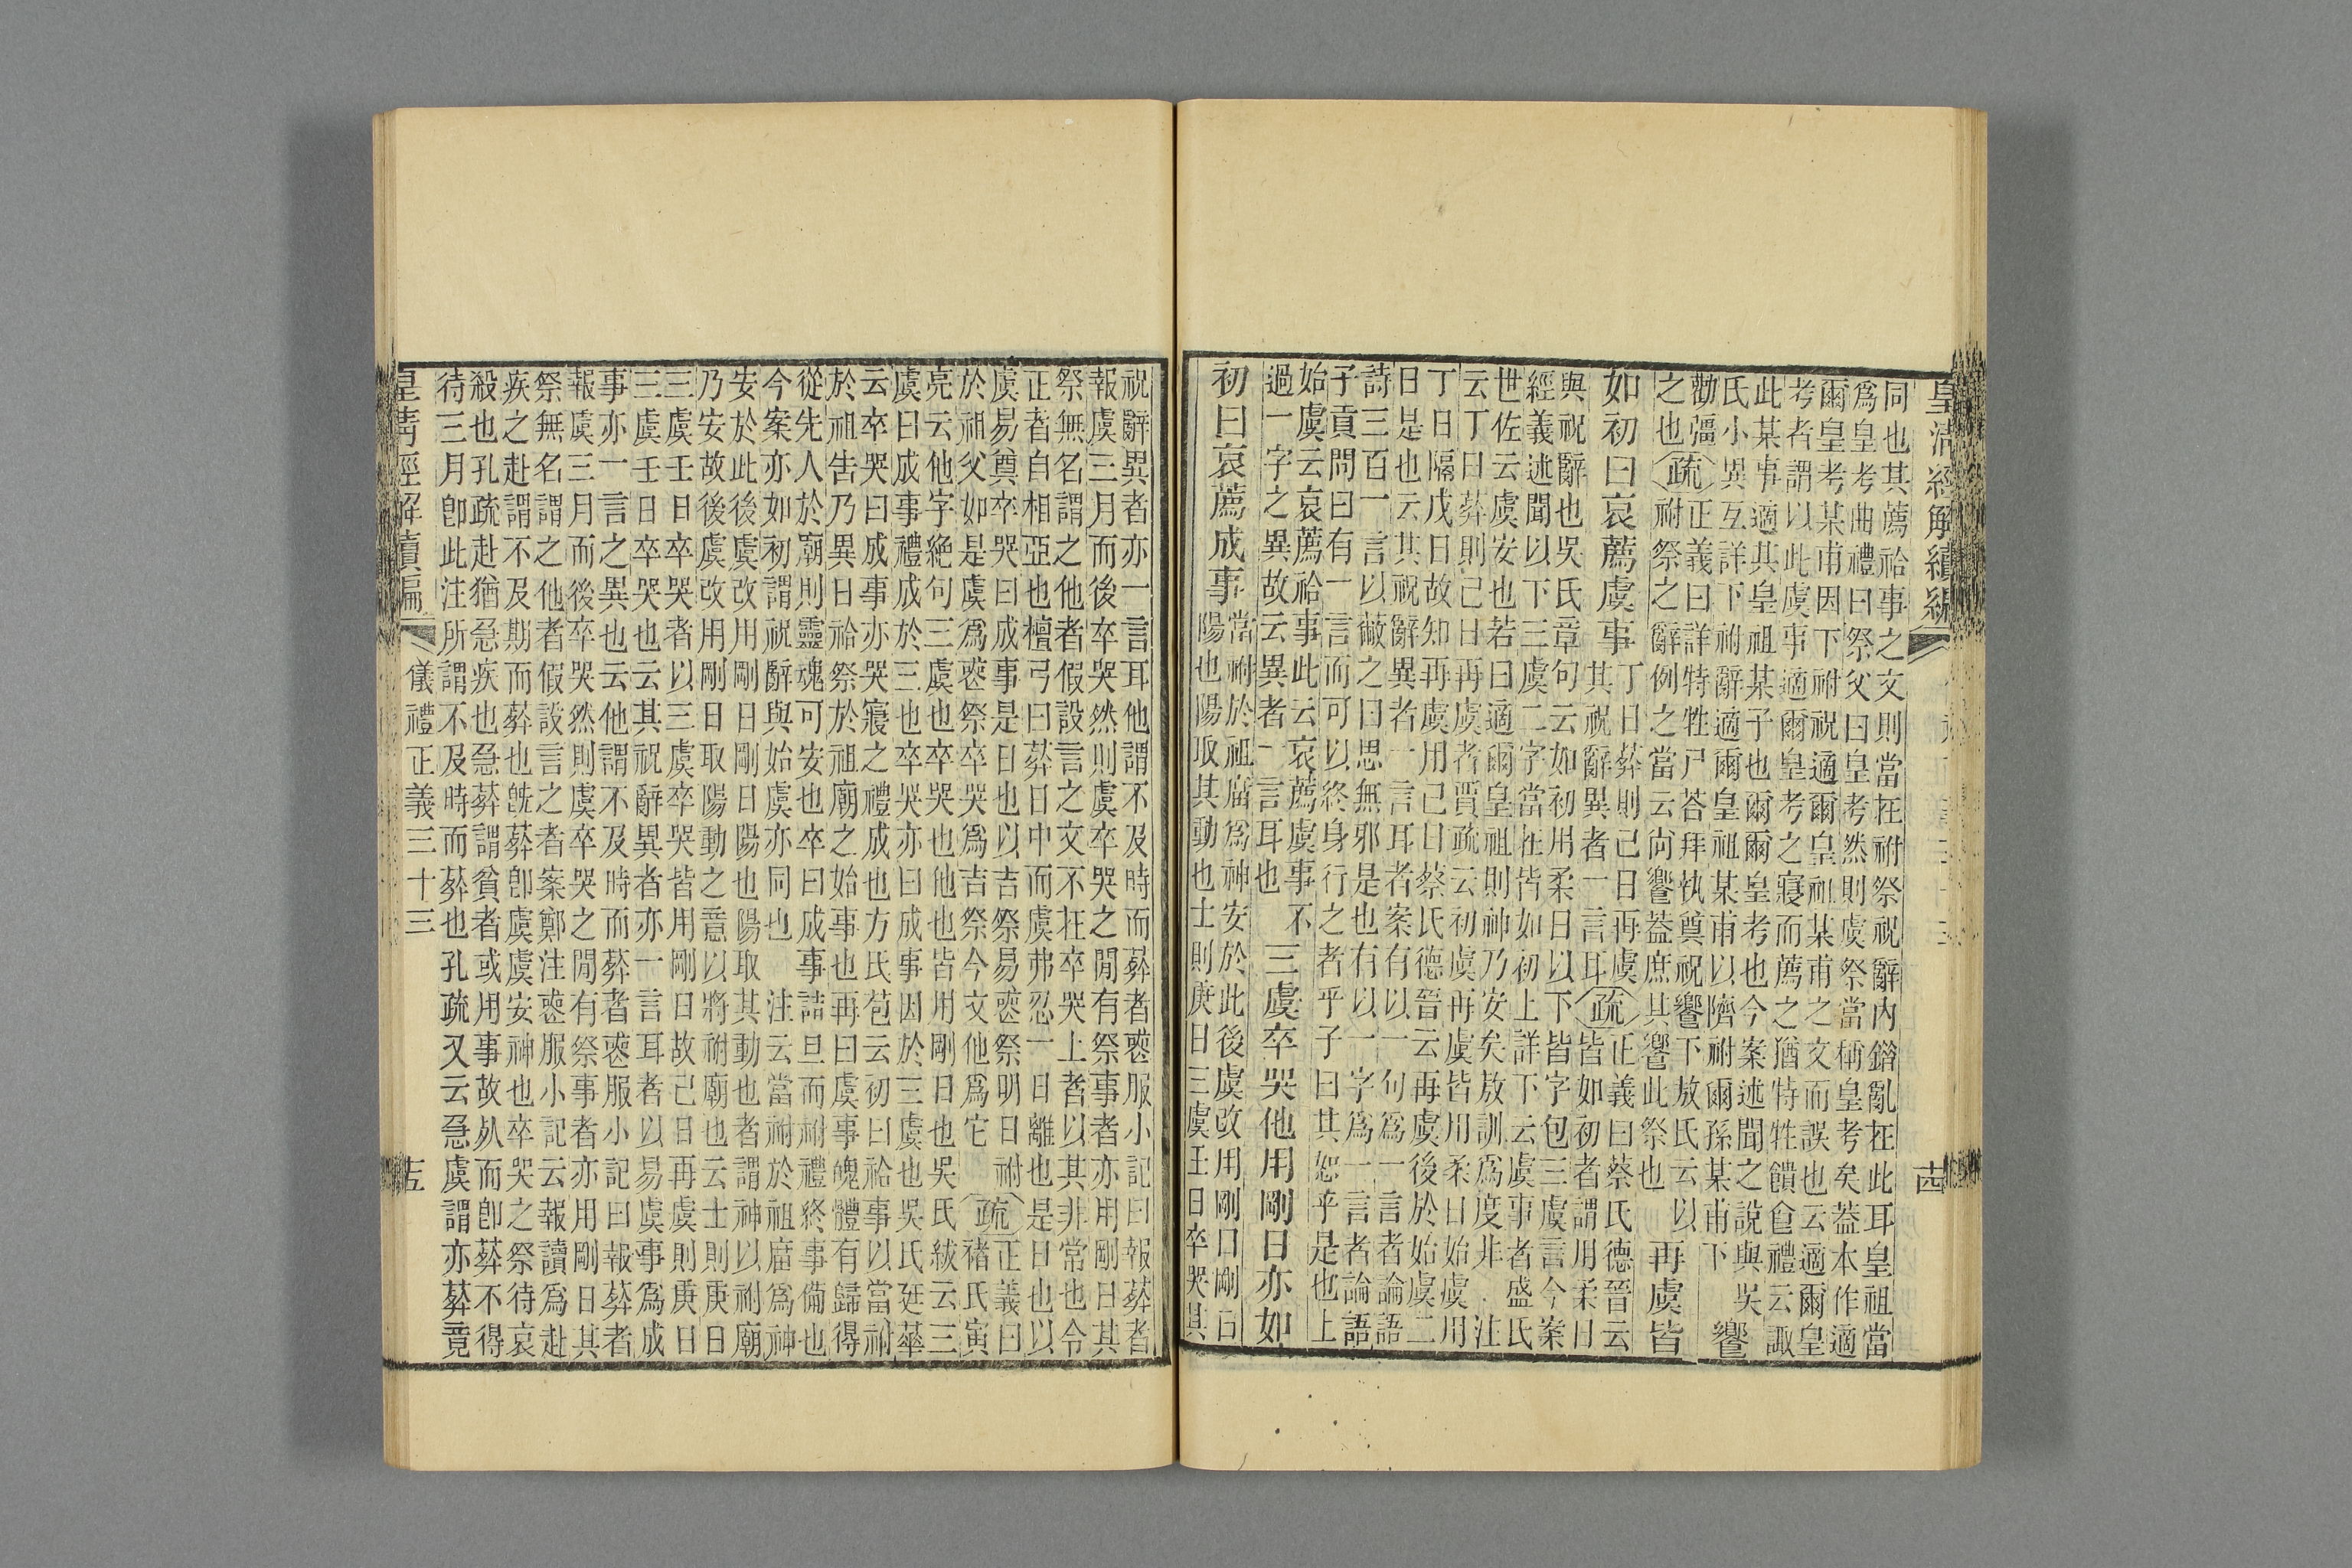 皇清經解續編
同也其薦祫事之文則當在祔祭祝辭內錯亂在此耳皇祖當
爲皇考曲禮曰祭父曰皇考然則虞祭當稱皇考矣葢本作適
爾皇考某甫因下祔祝適爾皇祖某甫之文而誤也云適爾皇
考者謂以此虞事適爾皇考之寢而薦之猶特牲饋食禮云諏
此某事適其皇祖某子也爾爾皇考也今案述聞之說與吳
氏小異互詳下祔辭適爾皇祖某甫以隮祔爾孫某甫下 饗
勸彊之也疏正義曰詳特牲尸荅拜執奠祝饗下敖氏云以
祔祭之辭例之當云尙饗葢庶其饗此祭也 再虞皆
如初曰哀薦虞事 丁日葬則己日再虞其祝辭異者一言耳疏正義曰蔡氏德晉云皆如初者謂用柔日
與祝辭也吳氏章句云如初用柔日以下皆字包三虞言今案
經義述聞以下三虞二字當在皆如初上詳下云虞事者盛氏
世佐云虞安也若曰適爾皇祖則神乃安矣敖訓爲度非 注
云丁日葬則己日再虞者賈疏云初虞再虞皆用柔日始虞用
丁日隔戊日故知再虞用己日蔡氏德晉云再虞後於始虞二
日是也云其祝辭異者一言耳者案有以一句爲一言者論語
詩三百一言以蔽之曰思無邪是也有以一字爲一言者論語
子貢問曰有一言而可以終身行之者乎子曰其恕乎是也上
始虞云哀薦祫事此云哀薦虞事不過一字之異故云異者一言耳也 三虞卒哭他用剛日亦如
初曰哀薦成事 當祔於祖庿爲神安於此後虞改用剛日剛日陽也陽取其動也士則庚日三虞壬日卒哭其
十四
祝辭異者亦一言耳他謂不及時而葬者喪服小記曰報葬者
報虞三月而後卒哭然則虞卒哭之閒有祭事者亦用剛日其
祭無名謂之他者假設言之文不在卒哭上者以其非常也令
正者自相亞也檀弓曰葬日中而虞弗忍一日離也是日也以
虞易奠卒哭曰成事是日也以吉祭易喪祭明日祔
於祖父如是虞爲喪祭卒哭爲吉祭今文他爲它 疏正義曰褚氏寅
亮云他字絶句三虞也卒哭也他也皆用剛日也吳氏紱云三
虞曰成事禮成於三也卒哭亦曰成事因於三虞也吳氏廷華
云卒哭曰成事亦哭寢之禮成也方氏苞云初曰祫事以當祔
於祖告乃異日祫祭於祖廟之始事也再曰虞事魄體有歸得
從先人於廟則靈魂可安也卒曰成事詰旦而祔禮終事備也
今案亦如初謂祝辭與始虞亦同也 注云當祔於祖庿爲神
安於此後虞改用剛日剛日陽也陽取其動也者謂神以祔廟
乃安故後虞改用剛日取陽動之意以將祔廟也云士則庚日
三虞壬日卒哭者以三虞卒哭皆用剛日故己日再虞則庚日
三虞壬日卒哭也云其祝辭異者亦一言耳者以易虞事爲成
事亦一言之異也云他謂不及時而葬者喪服小記曰報葬者
報虞三月而後卒哭然則虞卒哭之閒有祭事者亦用剛日其
祭無名謂之他者假設言之者案鄭注喪服小記云報讀爲赴
疾之赴謂不及期而葬也旣葬卽虞虞安神也卒哭之祭待哀
殺也孔疏赴猶急疾也急葬謂貧者或用事故死而卽葬不得
待三月卽此注所謂不及時而葬也孔疏又云急虞謂亦葬竟
皇淸經解續編
儀禮正義三十三
十五